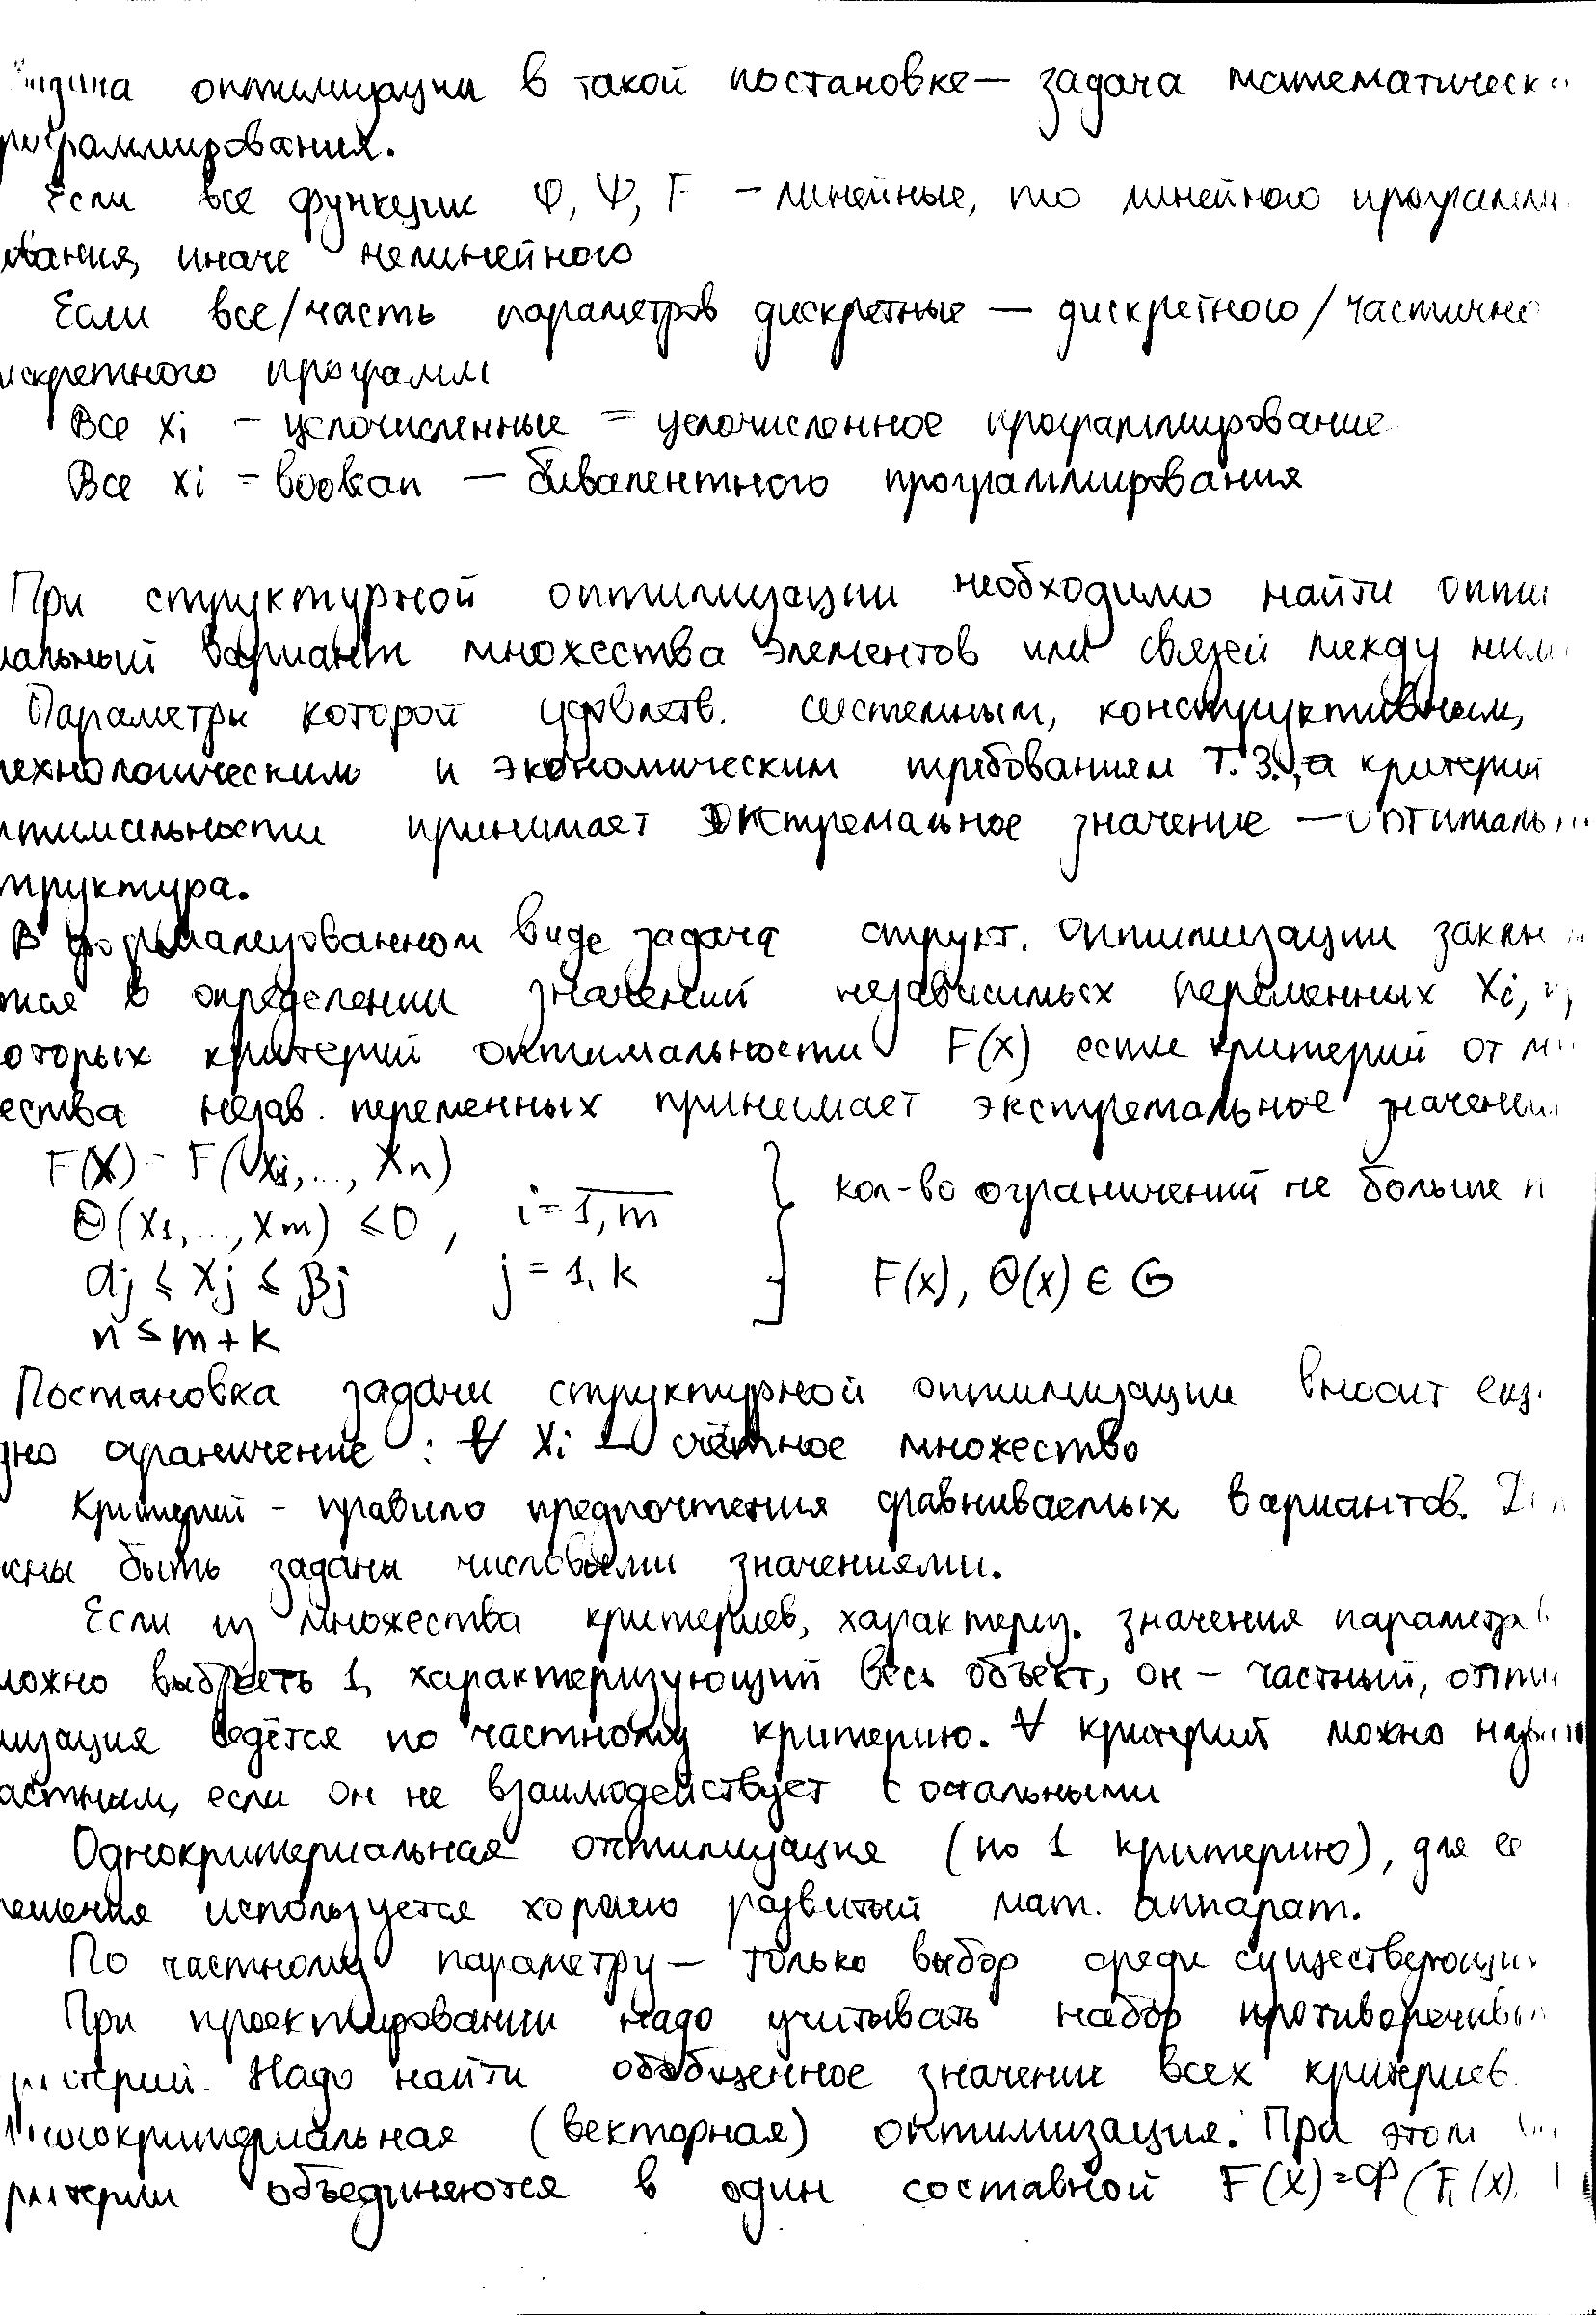 оптимизации в такой постановке — задача математическ
раммирования.
Если все функции φ, ψ, F – линейные, то линейного программи
вания, иначе нелинейного
Если все/часть параметров дискретные — дискретного/частично
искретного программ
Все xi – целочисленные = целочисленное программирование
Все xi = boolean — бивалентного программирования
При структурной оптимизации необходимо найти опти
мальный вариант множества элементов или связей между ним
Параметры которой удовлетв. системным, конструктивным,
технологическим и экономическим требованиям Т.З., а критерий
птимальности принимает экстремальное значение — оптималь
труктура.
В формализованном виде задача структ. оптимизации заклю
тся в определении значений независимых переменных Xi,
оторых критерий оптимальности F(x) если критерий от м
ества незав. переменных принимает экстремальное значени
F(X) = F(x1,..., Xn)
Θ(x1,...,xm) ≤ 0, i = 1,m } кол-во ограничений не больше n
αj ≤ Xj ≤ βj j = 1, k F(x), Θ(x) ∈ G
n ≤ m + k
Постановка задачи структурной оптимизации вносит ещ
дно ограничение : ∀ Xi – счётное множество
Критерий – правило предпочтения сравниваемых вариантов.
жны быть заданы числовыми значениями.
Если из множества критериев, характериз. значения параметр
можно выбрать 1, характеризующий весь объект, он – частный, опти
мизация ведётся по частному критерию. ∀ критерий можно назы
астным, если он не взаимодействует с остальными
Однокритериальная оптимизация (по 1 критерию), для её
решения используется хорошо развитый мат. аппарат.
По частному параметру – только выбор среди существующи
При проектировании надо учитывать набор противоречивы
ритерий. Надо найти обобщенное значение всех критериев.
Многокритериальная (векторная) оптимизация. При этом
ритерии объединяются в один составной F(X) = Φ(F1(x),